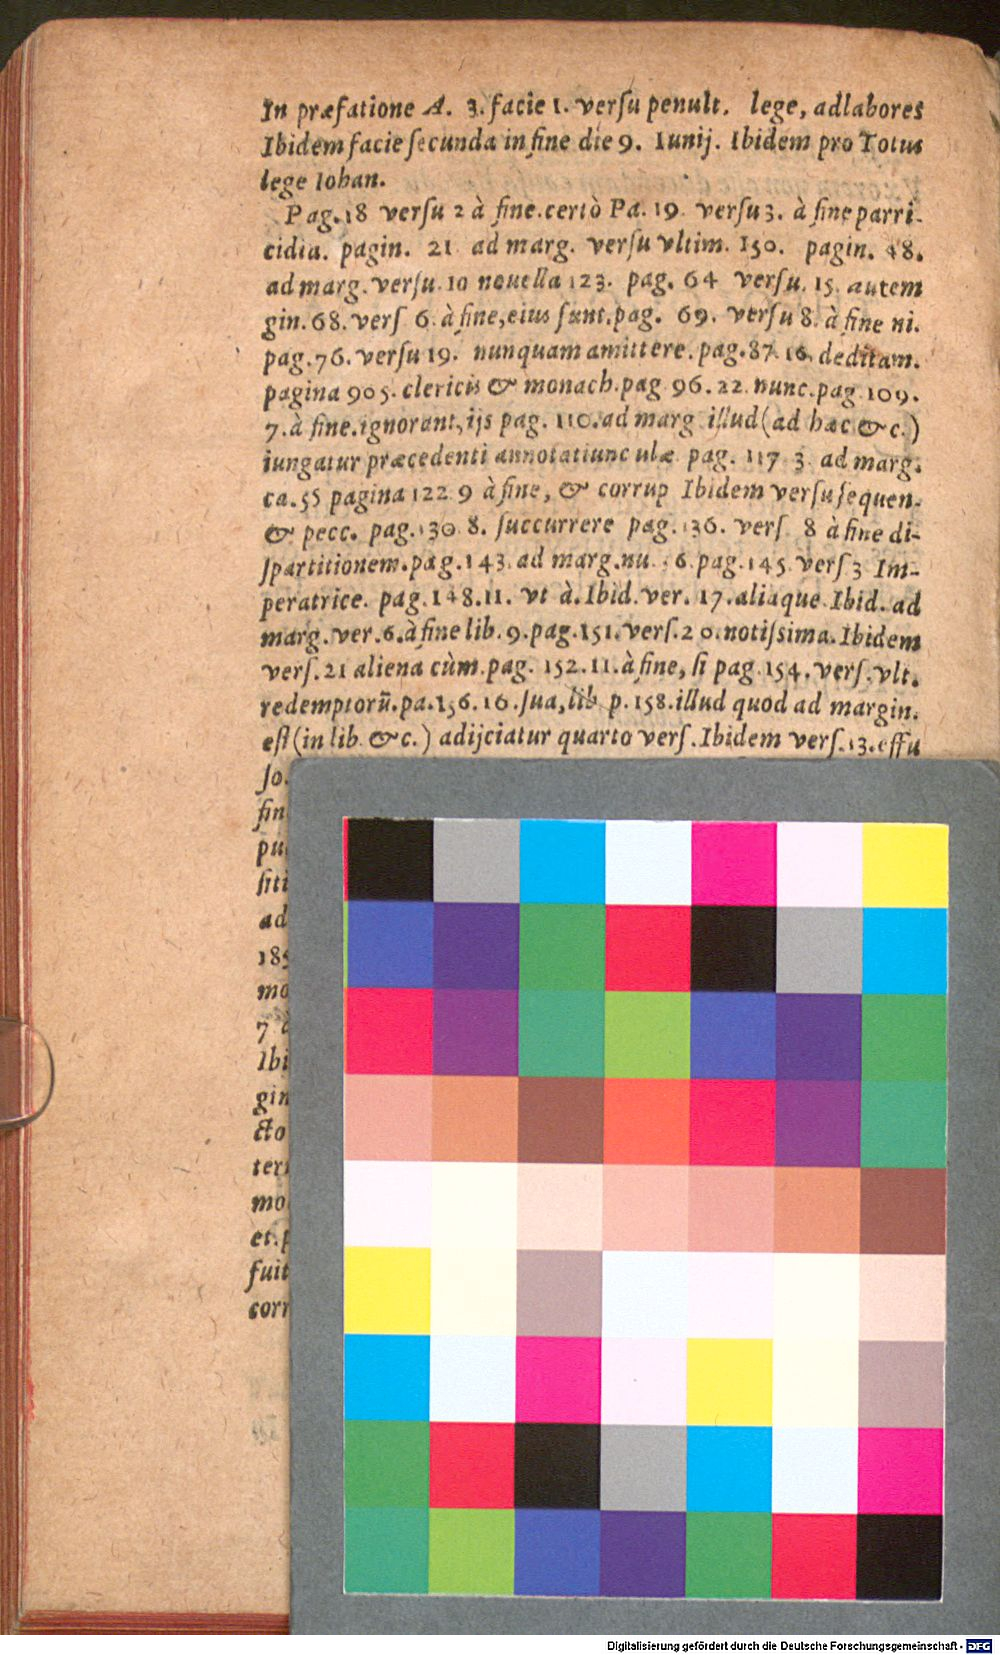 In præfatione A. 3. facie 1. versu penult. lege, adlabores
Ibidem facie secunda in fine die 9. Iunij. Ibidem pro Totus
lege Iohan.
Pag. 18 versu 2 à fine. certò Pa. 19. versu 3. à fine parri-
cidia. pagin. 21 ad marg. versu vltim. 150. pagin. 48.
ad marg. versu. 10 nouella 123. pag. 64 versu. 15. autem
gin. 68. vers 6. à fine, eius sunt. pag. 69. versu 8. à fine ni.
pag. 76. versu 19. nunquam amittere. pag. 87. 16. deditam.
pagina 905. clericis & monach. pag 96. 22. nunc. pag 109.
7. à fine. ignorant, ijs pag. 110. ad marg illud (ad hæc &c.)
iungatur præcedenti annotatiunculæ pag. 117 3. ad marg.
ca. 55 pagina 122 9 à fine, & corrup Ibidem versu sequen.
& pecc. pag. 130 8. succurrere pag. 136. vers 8 à fine di-
spartitionem. pag. 143. ad marg. nu. 6. pag. 145. vers 3 Im-
peratrice. pag. 148. 11. vt à. Ibid. ver. 17. aliaque Ibid. ad
marg. ver. 6. à fine lib. 9. pag. 151. vers. 20. notissima. Ibidem
vers. 21 aliena cùm. pag. 152. 11. à fine, si pag. 154. vers. vlt.
redemptorū. pa. 156. 16. sua, lib p. 158. illud quod ad margin.
est (in lib. &c.) adijciatur quarto vers. Ibidem vers. 13. effu
so.
fin
pu
siti
ad
185
mo
7 à
Ibi
gin
cto
ter
mo
et. p
fuit
corr
Digitalisierung gefördert durch die Deutsche Forschungsgemeinschaft - DFG